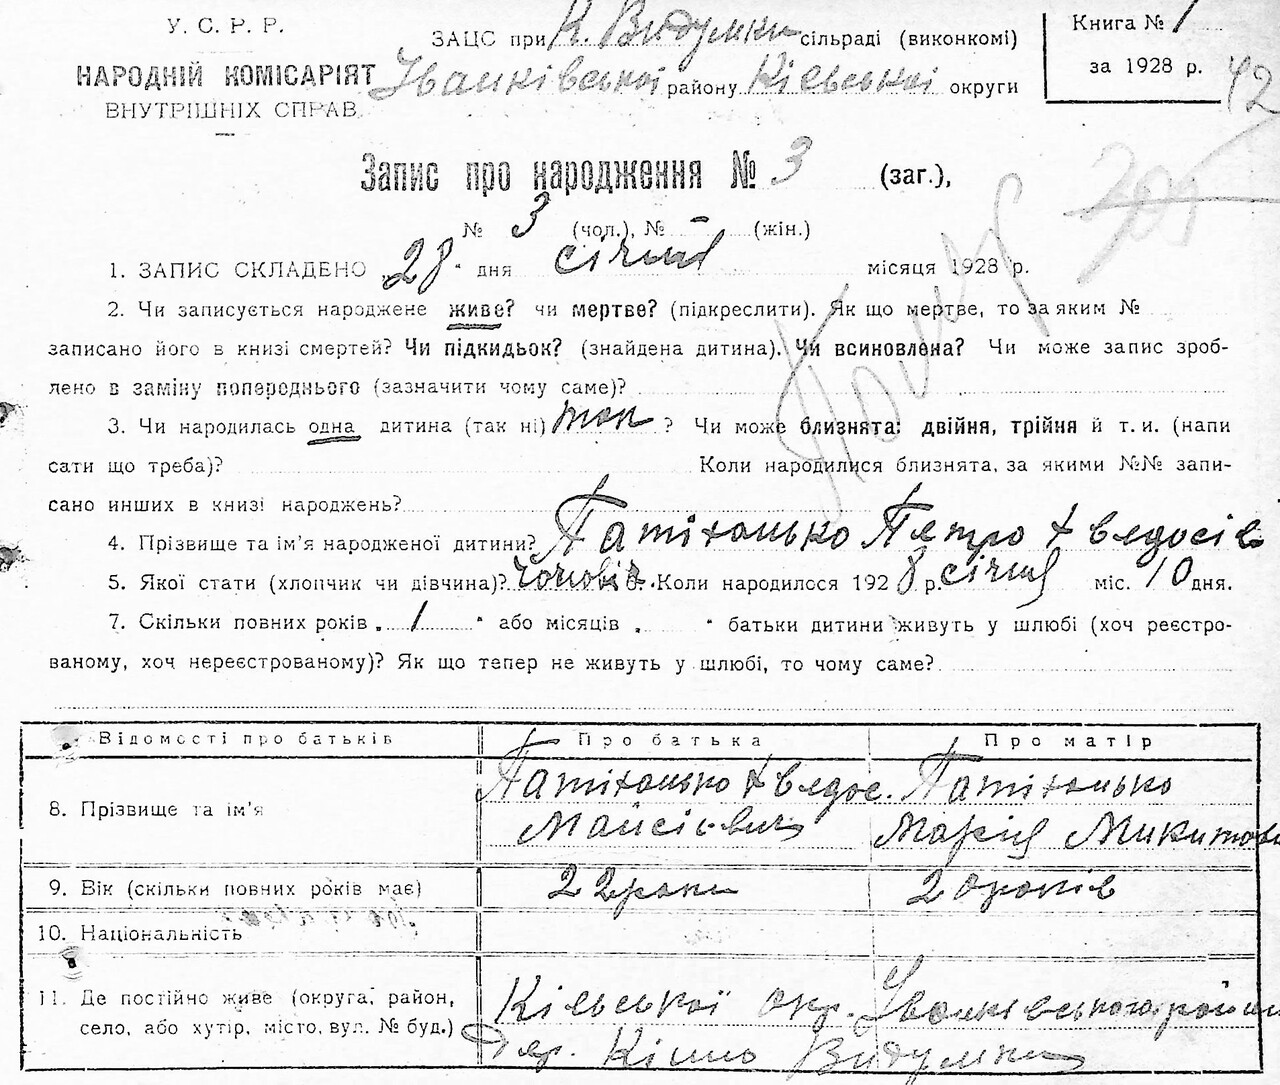 У. С. Р. Р.
НАРОДНІЙ КОМІСАРІЯТ
ВНУТРІШНІХ СПРАВ
ЗАЦС при К. Видумки сільраді (виконкомі)
Іванківської району Київської округи
Книга № 1
за 1928 р.
42
Запис про народження № 3 (заг.),
№ 3 (чол.), № - (жін.)
1. ЗАПИС СКЛАДЕНО „28“ дня січня місяця 1928 р.
2. Чи записується народжене живе? чи мертве? (підкреслити). Як що мертве, то за яким №
записано його в книзі смертей? Чи підкидьок? (знайдена дитина). Чи всиновлена? Чи може запис зроб-
лено в заміну попероднього (зазначити чому саме)?
3. Чи народилась одна дитина (так ні) так ? Чи може близнята: двійня, трійня й т. и. (напи
сати що треба)? Коли народилися близнята, за якими №№ запи-
сано инших в книзі народжень?
4. Прізвище та ім’я народженої дитини? Патіюнько Петро Хведосів
5. Якої стати (хлопчик чи дівчина)? чоловіч. 6. Коли народилося 1928 р. січня міс. 10 дня.
7. Скільки повних років „ 1 “ або місяців „ “ батьки дитини живуть у шлюбі (хоч реєстро-
ваному, хоч нереєстрованому)? Як що тепер не живуть у шлюбі, то чому саме?
Відомості про батьків Про батька Про матір
8. Прізвище та ім’я Патіюнько Хведос. Патіюнько
Мойсієвич Марія Микитова
9. Вік (скільки повних років має) 22 роки 20 років
10. Національність
11. Де постійно живе (округа, район,
село, або хутір, місто, вул. № буд.)
Київської окр. Іванківського району
Дер. Кіпно Видумки